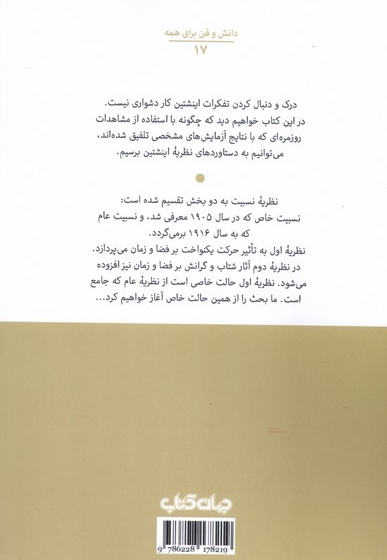 دانش و فن برای همه
۱۷
درک و دنبال کردن تفکرات اینشتین کار دشواری نیست.
در این کتاب خواهیم دید که چگونه با استفاده از مشاهدات
روزمره‌ای که با نتایج آزمایش‌های مشخصی تلفیق شده‌اند،
می‌توانیم به دستاوردهای نظریهٔ اینشتین برسیم.
نظریهٔ نسبیت به دو بخش تقسیم شده است:
نسبیت خاص که در سال ۱۹۰۵ معرفی شد، و نسبیت عام
که به سال ۱۹۱۶ برمی‌گردد.
نظریهٔ اول به تأثیر حرکت یکنواخت بر فضا و زمان می‌پردازد.
در نظریهٔ دوم آثار شتاب و گرانش بر فضا و زمان نیز افزوده
می‌شود. نظریهٔ اول حالت خاصی است از نظریهٔ عام که جامع
است. ما بحث را از همین حالت خاص آغاز خواهیم کرد...
جهان کتاب
9 786228 178219